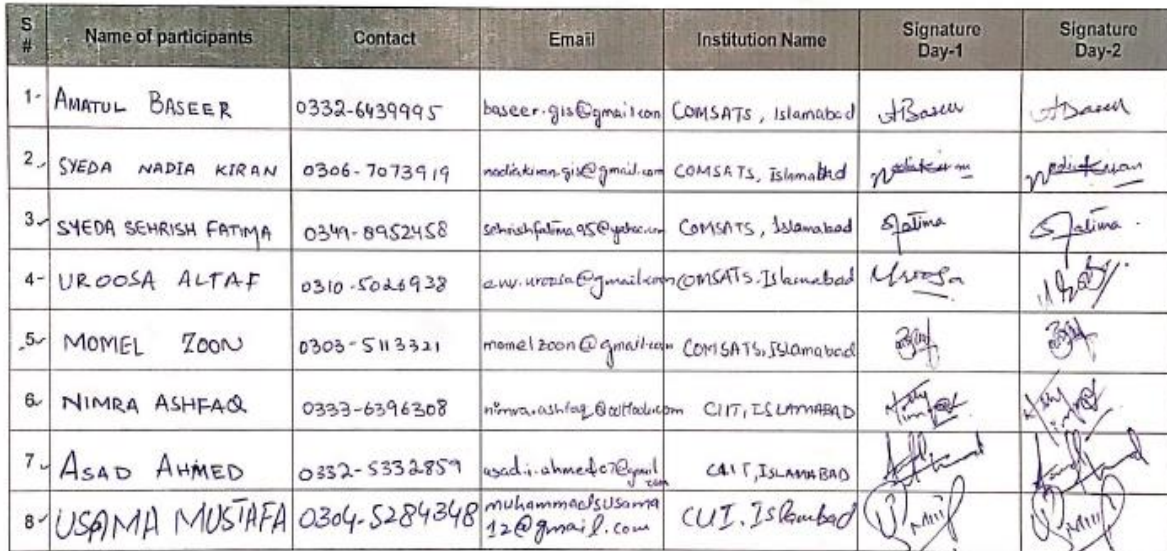 S # Name of participants Contact Email Institution Name Signature Day-1 Signature Day-2
1- AMATUL BASEER 0332-6439995 baseer.gis@gmail.com COMSATS, Islamabad ABaseer ABaseer
2- SYEDA NADIA KIRAN 0306-7073919 nadiakiran.gis@gmail.com COMSATS, Islamabad Nadiakiran Nadiakiran
3- SYEDA SEHRISH FATIMA 0349-8952458 sehrishfatima95@yahoo.com COMSATS, Islamabad SFatima SFatima.
4- UROOSA ALTAF 0310-5026938 COMSATS, Islamabad Uroosa
5- MOMEL ZOON 0303-5113321 momelzoon@gmail.com COMSATS, Islamabad
6- NIMRA ASHFAQ 0333-6396308 CIIT, ISLAMABAD
7- ASAD AHMED 0332-5332859 asad.i.ahmed07@gmail.com CIIT, ISLAMABAD
8- USAMA MUSTAFA 0304-5284348 muhammadsusama12@gmail.com CUI, Islambad